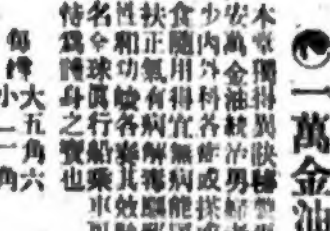 一萬金油
堂獨得異訣
安萬金油統治男婦
少內外科各症或搽
食隨用得宜無病能
扶正氣有病解毒驅
性和功峻各奏其效
名全球行船乘車
特為身之寶也
每罇
大五角六
小二角